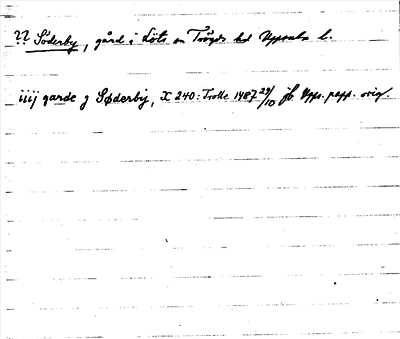 ?? Söderby, gård i Löts sn Trögds hd Uppsala l.
iiij garde j Søderbij, X 240: Trolle 1487 29/10 jb Upps. papp. orig.